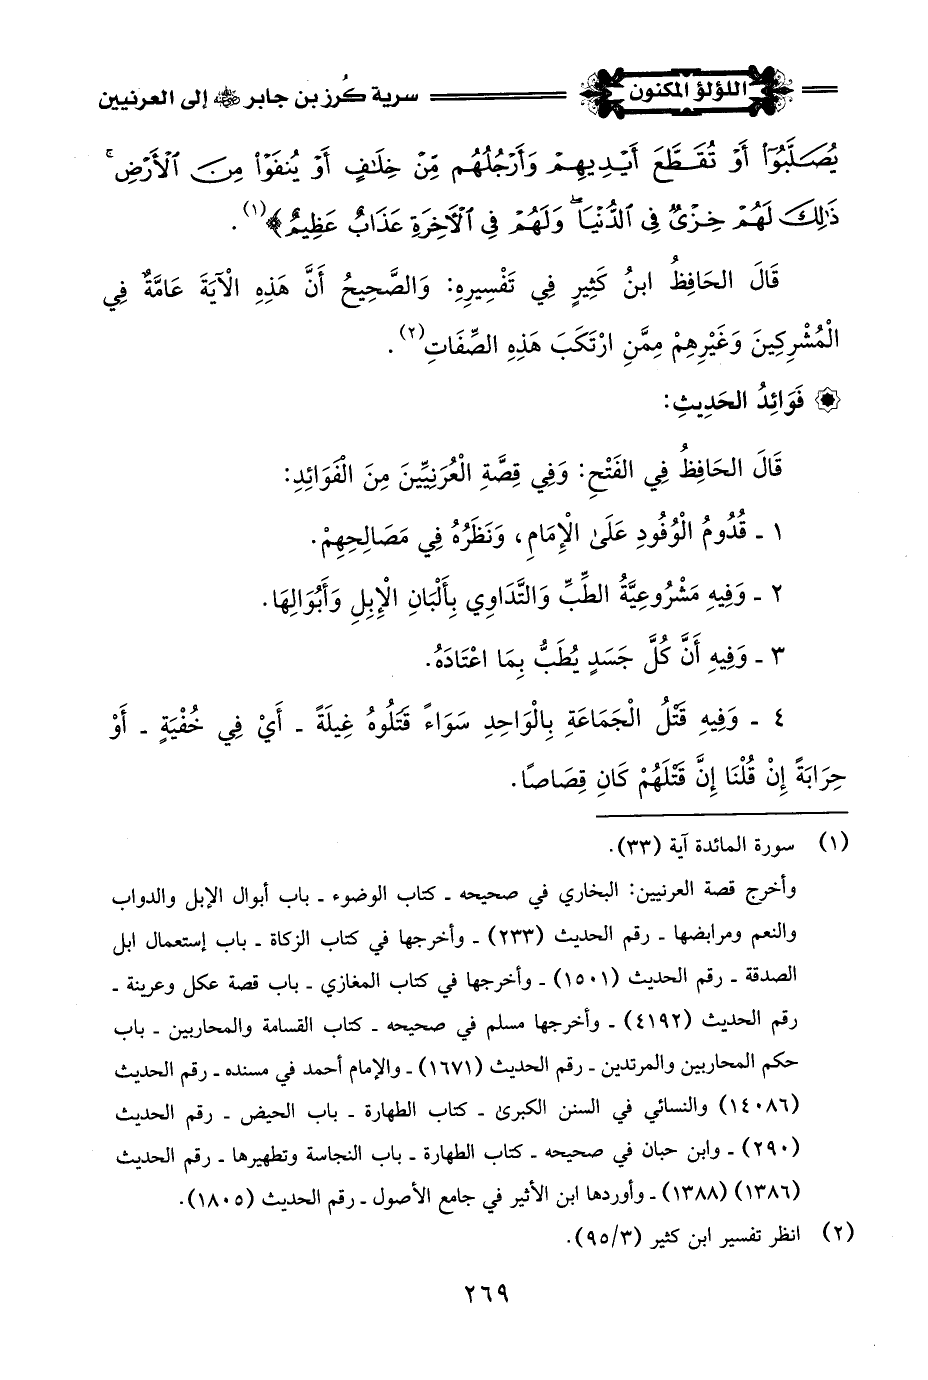 اللؤلؤ المكنون
سرية كُرز بن جابر ﷺ إلى العرنيين
يُصَلَّبُوٓا۟ أَوْ تُقَطَّعَ أَيْدِيهِمْ وَأَرْجُلُهُم مِّنْ خِلَٰفٍ أَوْ يُنفَوْا۟ مِنَ ٱلْأَرْضِ ۚ
ذَٰلِكَ لَهُمْ خِزْىٌ فِى ٱلدُّنْيَا ۖ وَلَهُمْ فِى ٱلْآخِرَةِ عَذَابٌ عَظِيمٌ﴾(١).
قَالَ الحَافِظُ ابنُ كَثِيرٍ فِي تَفْسِيرِهِ: وَالصَّحِيحُ أَنَّ هَذِهِ الْآيَةَ عَامَّةٌ فِي
الْمُشْرِكِينَ وَغَيْرِهِمْ مِمَّنِ ارْتَكَبَ هَذِهِ الصِّفَاتِ(٢).
فَوَائِدُ الحَدِيثِ:
قَالَ الحَافِظُ فِي الفَتْحِ: وَفِي قِصَّةِ الْعُرَنِيِّينَ مِنَ الْفَوَائِدِ:
١ - قُدُومُ الْوُفُودِ عَلَى الْإِمَامِ، وَنَظَرُهُ فِي مَصَالِحِهِمْ.
٢ - وَفِيهِ مَشْرُوعِيَّةُ الطِّبِّ وَالتَّدَاوِي بِأَلْبَانِ الْإِبِلِ وَأَبْوَالِهَا.
٣ - وَفِيهِ أَنَّ كُلَّ جَسَدٍ يُطَبُّ بِمَا اعْتَادَهُ.
٤ - وَفِيهِ قَتْلُ الْجَمَاعَةِ بِالْوَاحِدِ سَوَاءً قَتَلُوهُ غِيلَةً - أَيْ فِي خُفْيَةٍ - أَوْ
حِرَابَةً إِنْ قُلْنَا إِنَّ قَتْلَهُمْ كَانَ قِصَاصًا.
(١) سورة المائدة آية (٣٣).
وأخرج قصة العرنيين: البخاري في صحيحه - كتاب الوضوء - باب أبوال الإبل والدواب
والنعم ومرابضها - رقم الحديث (٢٣٣) - وأخرجها في كتاب الزكاة - باب إستعمال ابل
الصدقة - رقم الحديث (١٥٠١) - وأخرجها في كتاب المغازي - باب قصة عكل وعرينة -
رقم الحديث (٤١٩٢) - وأخرجها مسلم في صحيحه - كتاب القسامة والمحاربين - باب
حكم المحاربين والمرتدين - رقم الحديث (١٦٧١) - والإمام أحمد في مسنده - رقم الحديث
(١٤٠٨٦) والنسائي في السنن الكبرى - كتاب الطهارة - باب الحيض - رقم الحديث
(٢٩٠) - وابن حبان في صحيحه - كتاب الطهارة - باب النجاسة وتطهيرها - رقم الحديث
(١٣٨٦) (١٣٨٨) - وأوردها ابن الأثير في جامع الأصول - رقم الحديث (١٨٠٥).
(٢) انظر تفسير ابن كثير (٩٥/٣).
٢٦٩